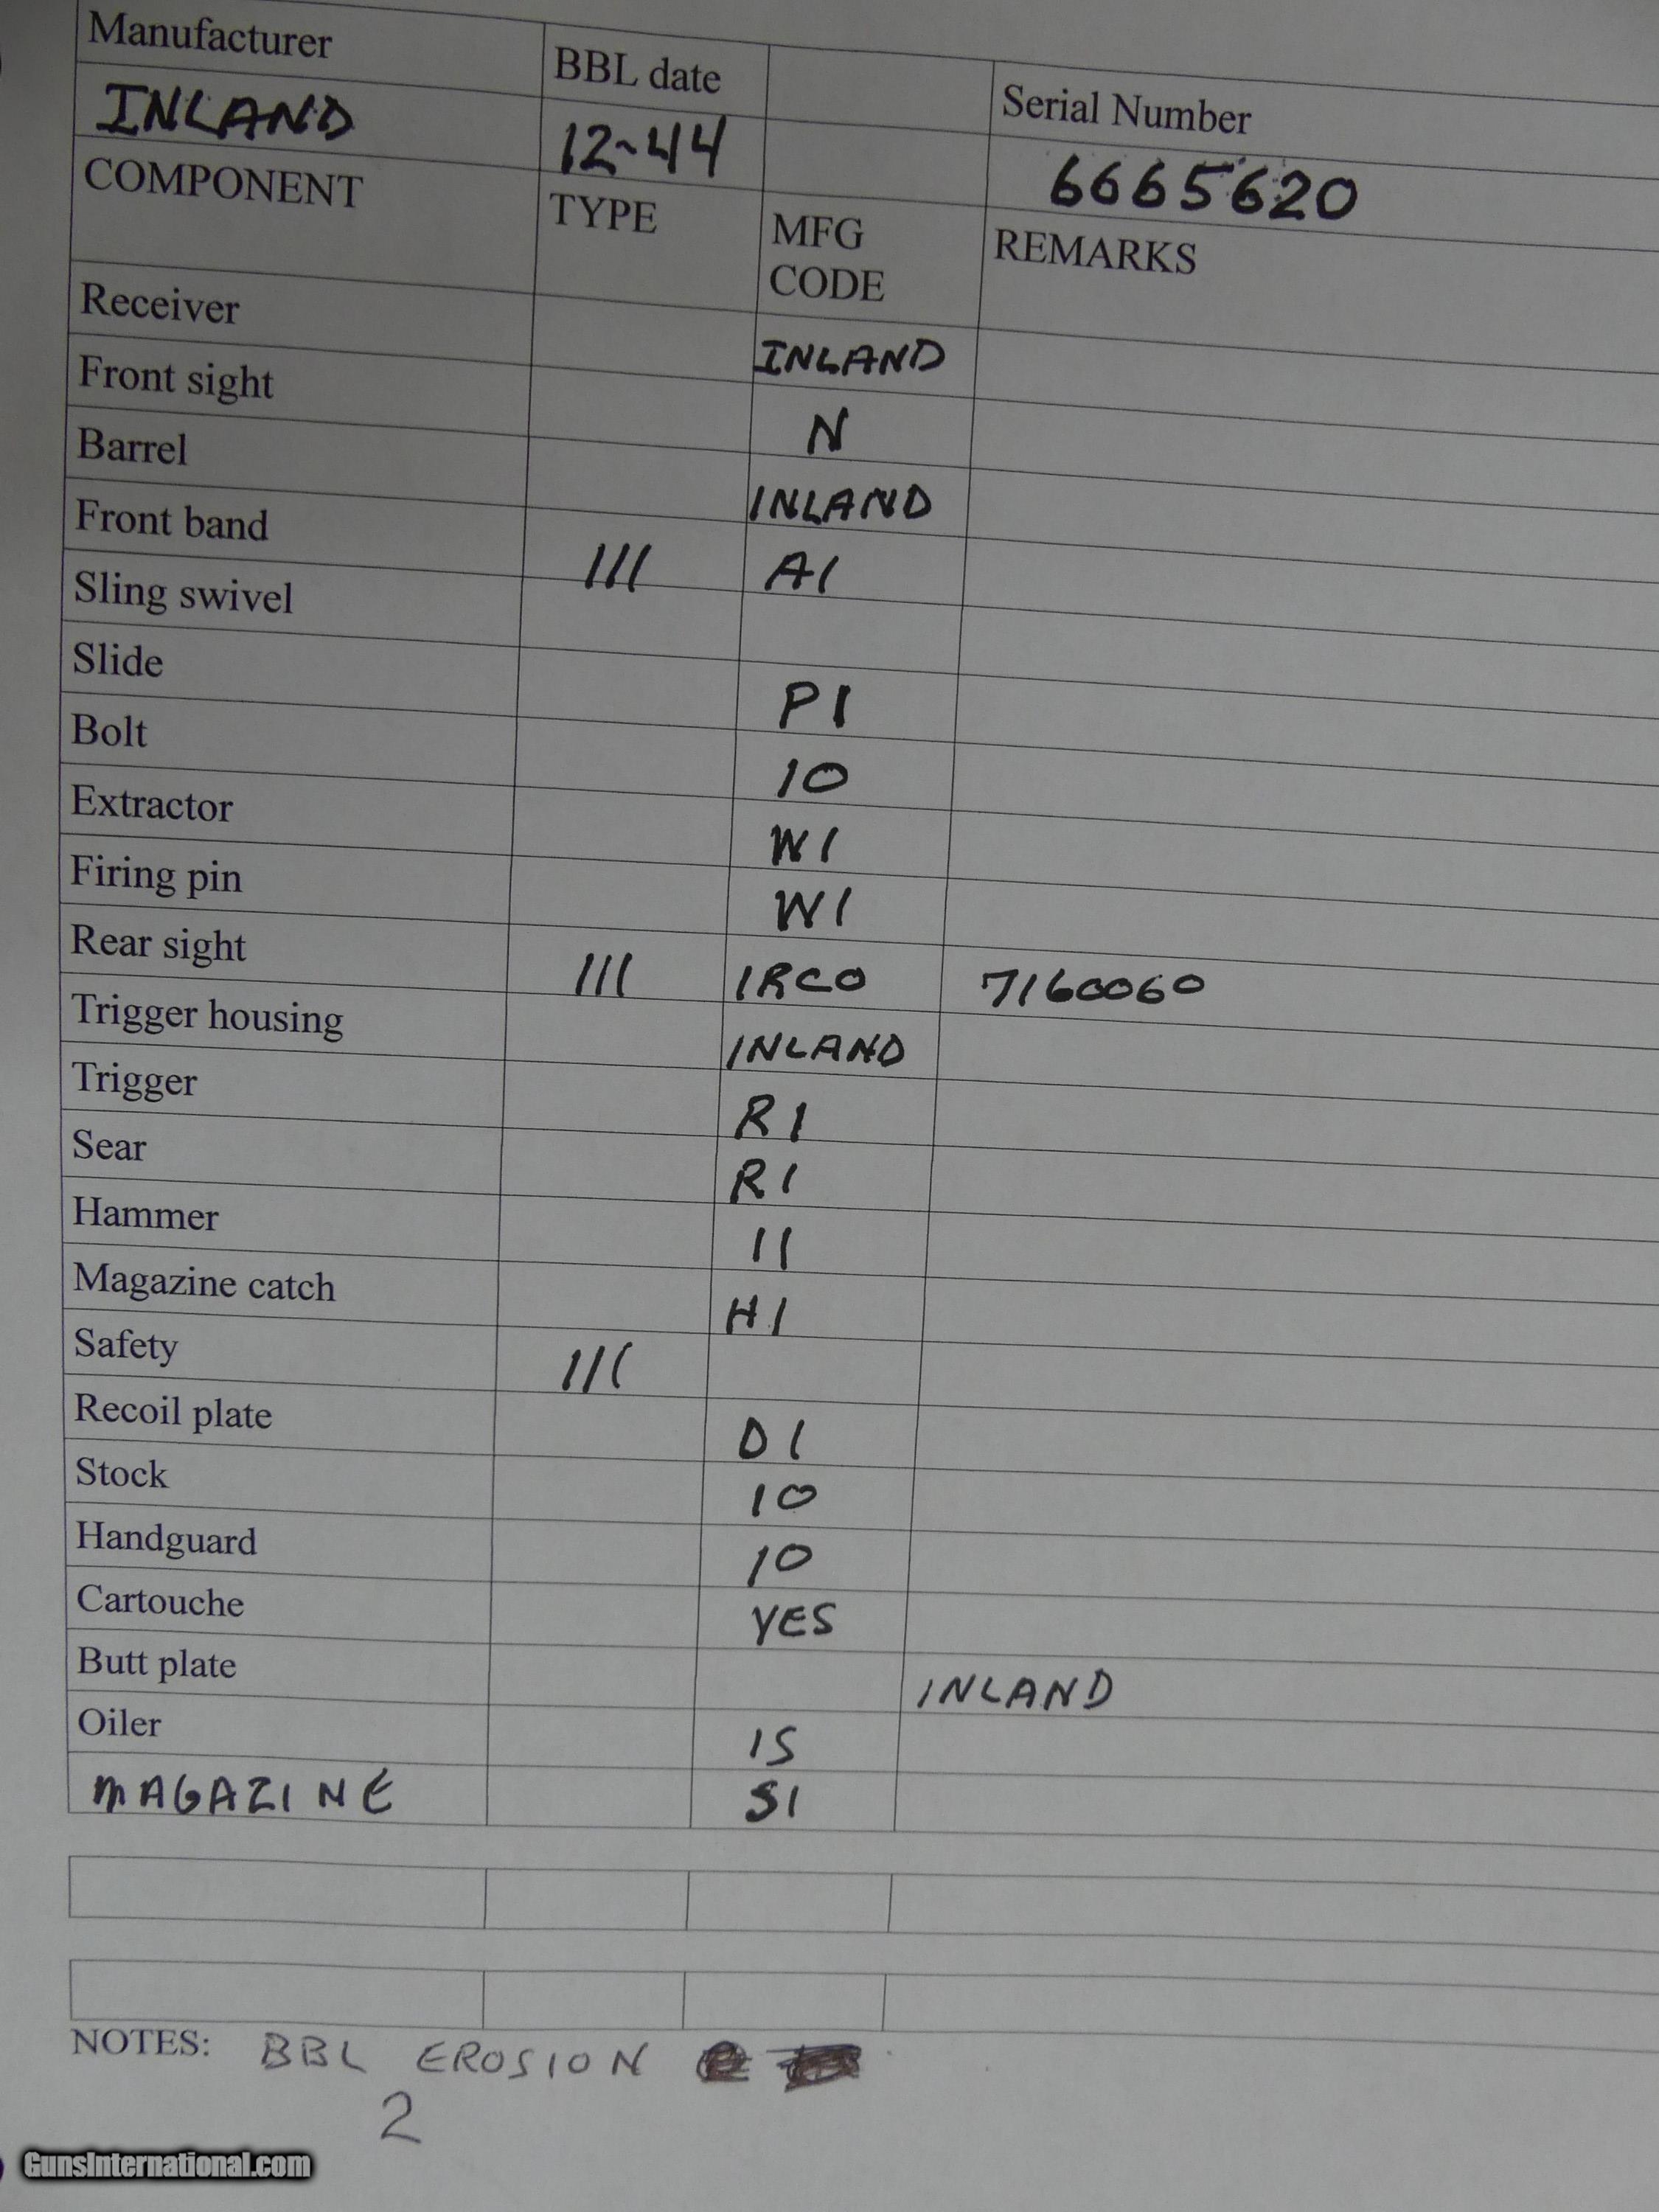 Manufacturer BBL date Serial Number
INLAND 12-44 6665620
COMPONENT TYPE MFG CODE REMARKS
Receiver INLAND
Front sight N
Barrel INLAND
Front band III AI
Sling swivel
Slide PI
Bolt IO
Extractor WI
Firing pin WI
Rear sight III IRCO 7160060
Trigger housing INLAND
Trigger RI
Sear RI
Hammer II
Magazine catch HI
Safety III
Recoil plate DI
Stock IO
Handguard IO
Cartouche YES
Butt plate INLAND
Oiler IS
MAGAZINE SI
NOTES: BBL EROSION
2
GunsInternational.com